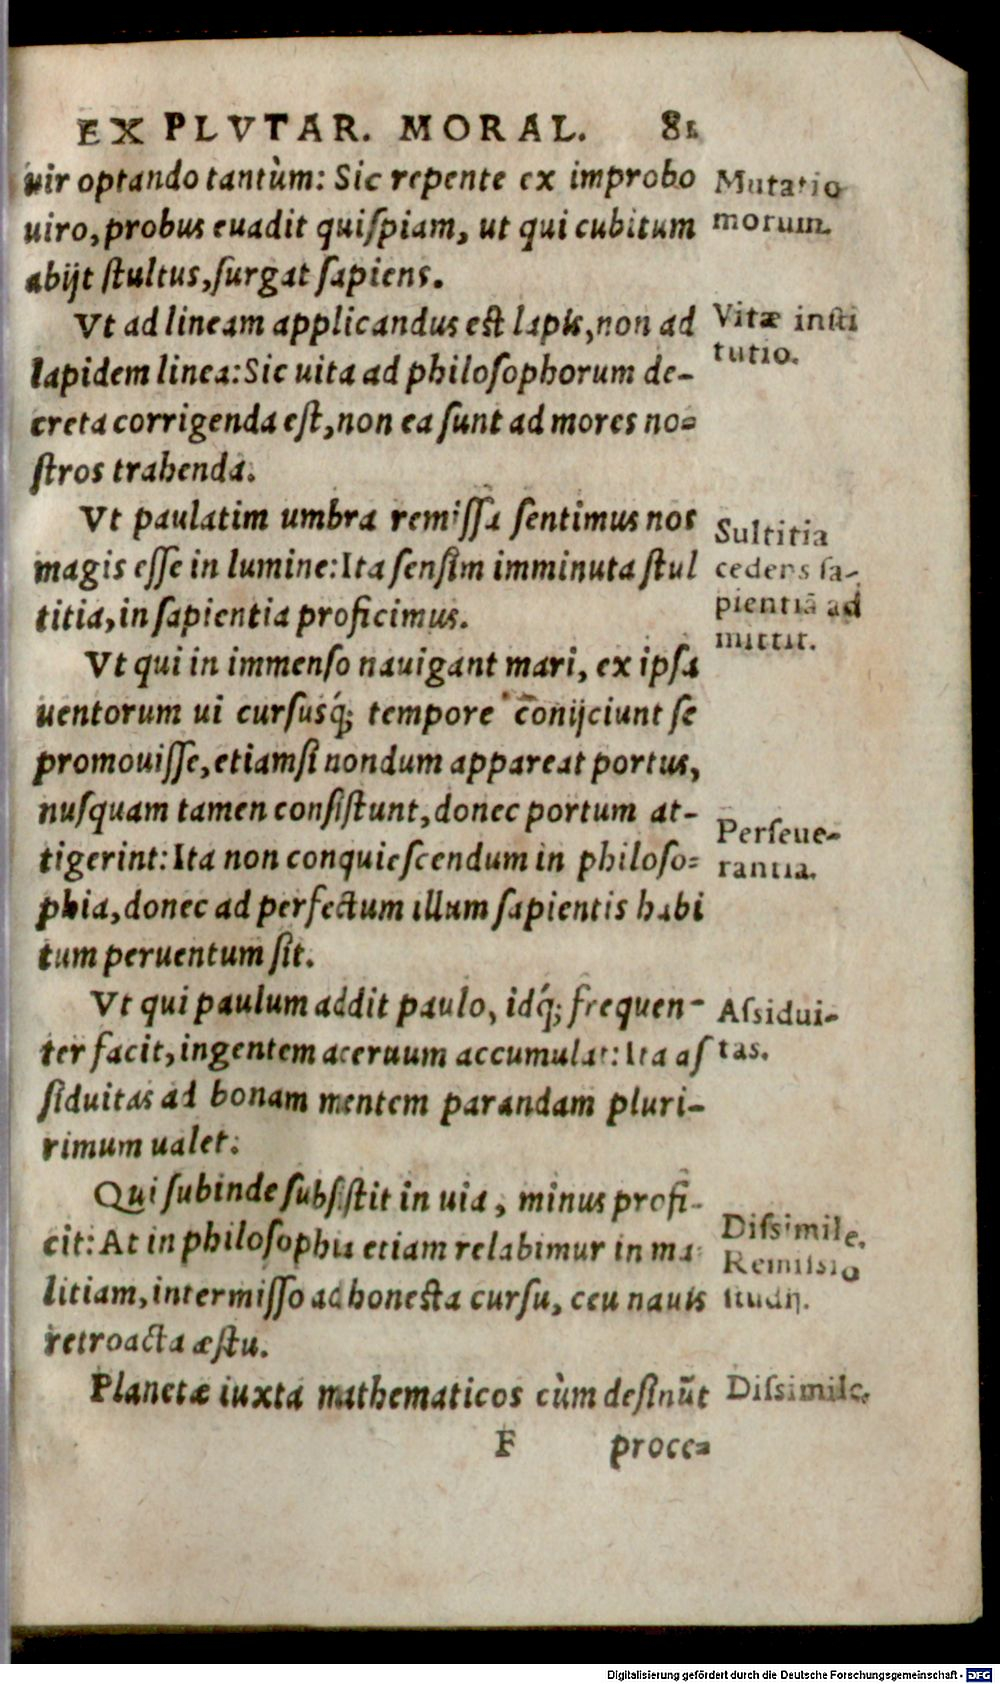 EX PLVTAR. MORAL. 81
uir optando tantùm: Sic repente ex improbo
uiro, probus euadit quiſpiam, ut qui cubitum
abijt ſtultus, ſurgat ſapiens.
Vt ad lineam applicandus eſt lapis, non ad
lapidem linea: Sic uita ad philoſophorum de-
creta corrigenda eſt, non ea ſunt ad mores no=
ſtros trahenda.
Vt paulatim umbra remiſſa ſentimus nos
magis eſſe in lumine: Ita ſenſim imminuta ſtul
titia, in ſapientia proficimus.
Vt qui in immenſo nauigant mari, ex ipſa
uentorum ui curſusq́; tempore conijciunt ſe
promouiſſe, etiamſi nondum appareat portus,
nuſquam tamen conſiſtunt, donec portum at-
tigerint: Ita non conquieſcendum in philoſo=
phia, donec ad perfectum illum ſapientis habi
tum peruentum ſit.
Vt qui paulum addit paulo, idq́; frequen-
ter facit, ingentem aceruum accumulat: Ita aſ
ſiduitas ad bonam mentem parandam pluri-
rimum ualet.
Qui ſubinde ſubſiſtit in uia, minus profi-
cit: At in philoſophia etiam relabimur in ma
litiam, intermiſſo ad honeſta curſu, ceu nauis
retroacta æſtu.
Planetæ iuxta mathematicos cùm deſinũt
F proce=
Mutatio
morum.
Vitæ inſti
tutio.
Sultitia
cedens ſa-
pientiã ad
mittit.
Perſeue-
rantia.
Aſsidui-
tas.
Diſsimile.
Remiſsio
ſtudij.
Diſsimile.
Digitalisierung gefördert durch die Deutsche Forschungsgemeinschaft - DFG